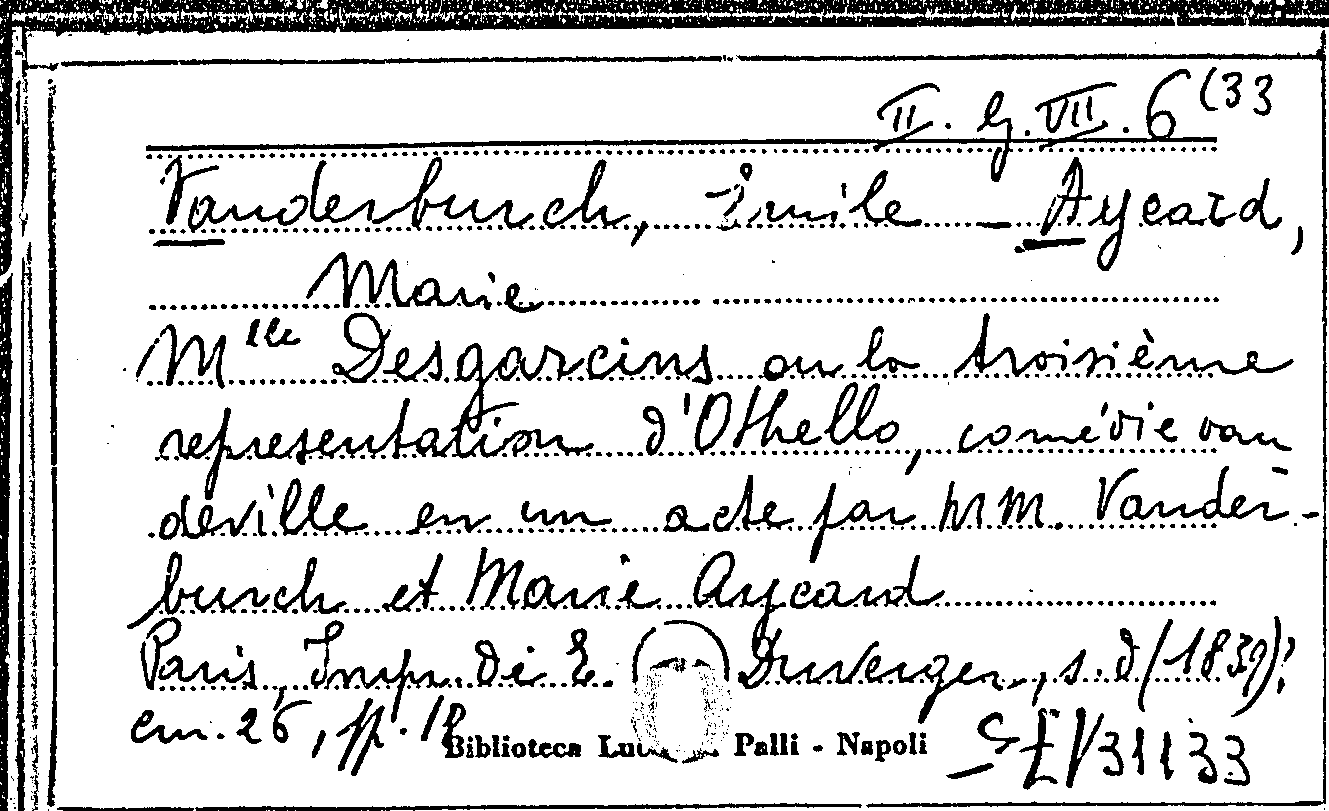 II. G. VII. 6 (33
Vanderburch, Émile - Aycard,
Marie
Mlle Desgarcins ou la troisième
representation d'Othello, comédie vau
deville en un acte par MM. Vander-
burch et Marie Aycard
Paris, Imp. di E. Duverger, s.d (1839)?
cm. 26, pp. 18
Biblioteca Palli - Napoli
31133